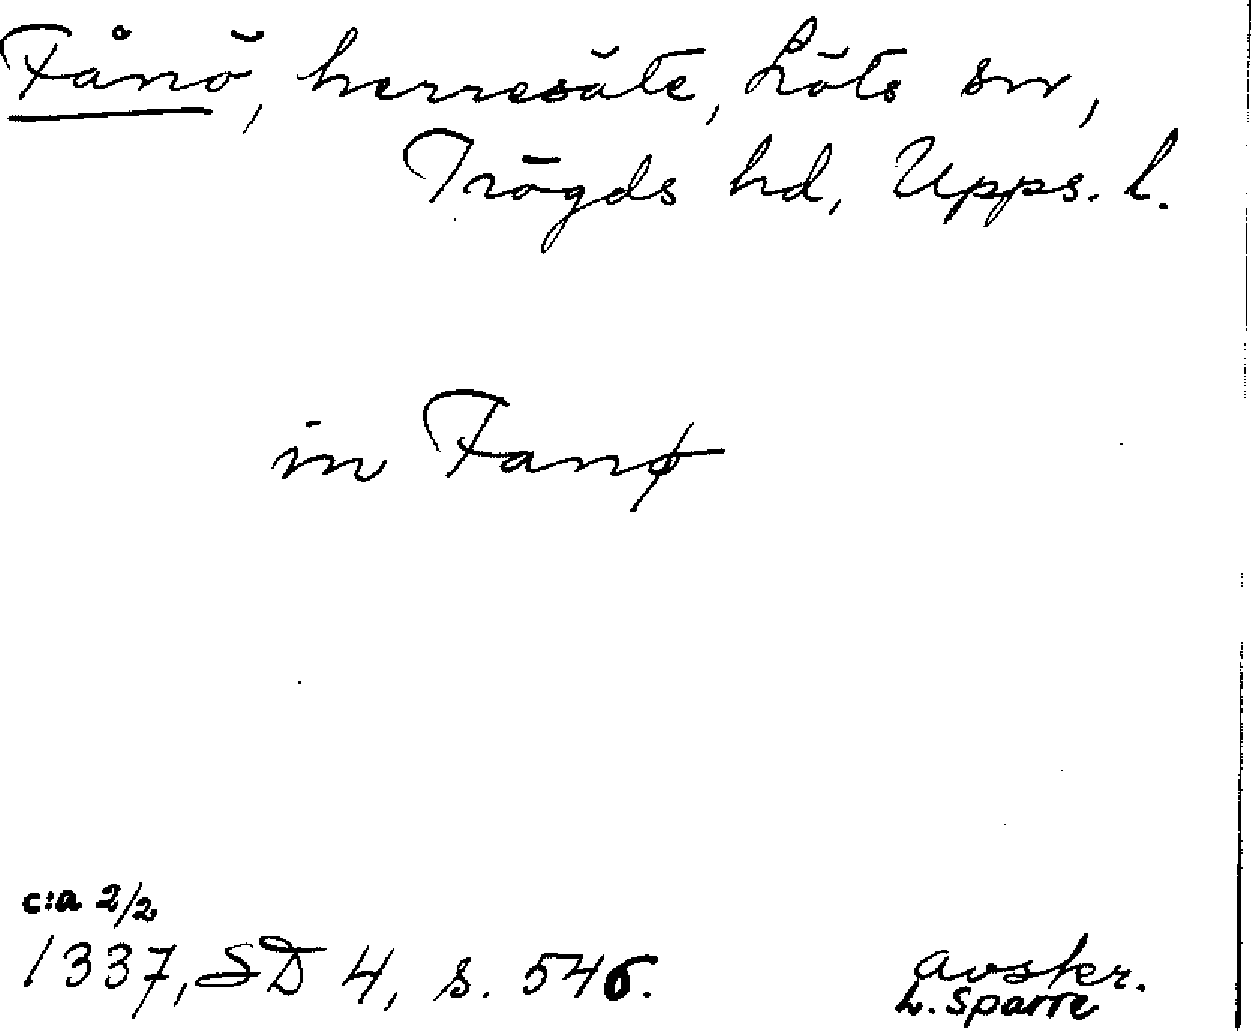 Fånö, herresäte, Löts sn,
Trögds hd, Upps. l.
in Fanø
c:a 2/2
1337, SD 4, s. 546.
avskr.
L. Sparre